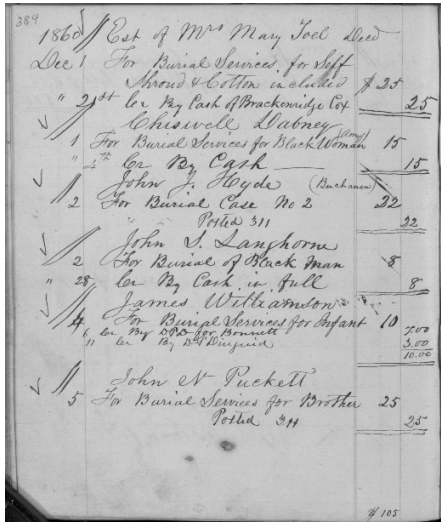 384
1860 Est of Mrs Mary Toel Decd
Dec 1 For Burial Services for Self
Shroud & Cotton included $ 25
" 21st Cr By Cash of Brackenridge Cox 25
Chiswell Dabney
1 For Burial Services for Black Woman (Amy) 15
" 4th Cr By Cash 15
John J. Hyde (Buchanan)
2 For Burial Case No 2 22
Posted 311 22
John S. Langhorne
2 For Burial of Black Man 8
" 28 Cr By Cash in full 8
James Williamson
4 For Burial Services for Infant 10
6 Cor By DPD for Bonnett 7.00
11 Cr By D P Diuguid 3.00
10.00
John N Puckett
5 For Burial Services for Brother 25
Posted 311 25
$ 105